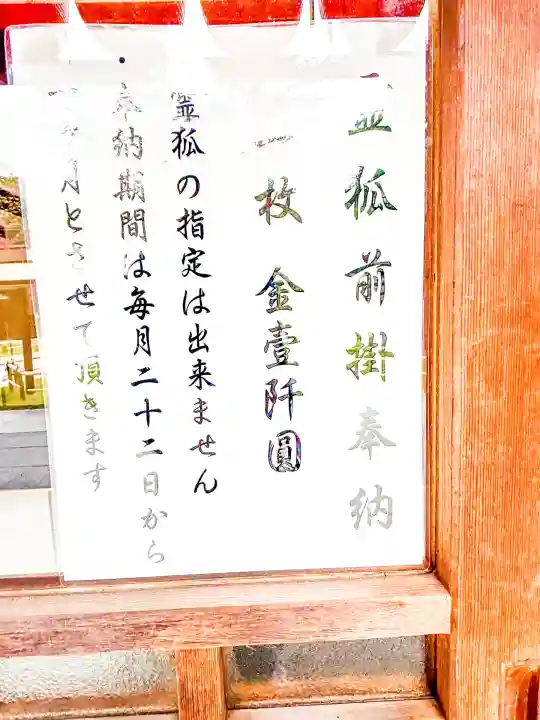 霊狐前掛奉納
一枚 金壹阡圓
霊狐の指定は出来ません
奉納期間は毎月二十二日から
月とさせて頂きます